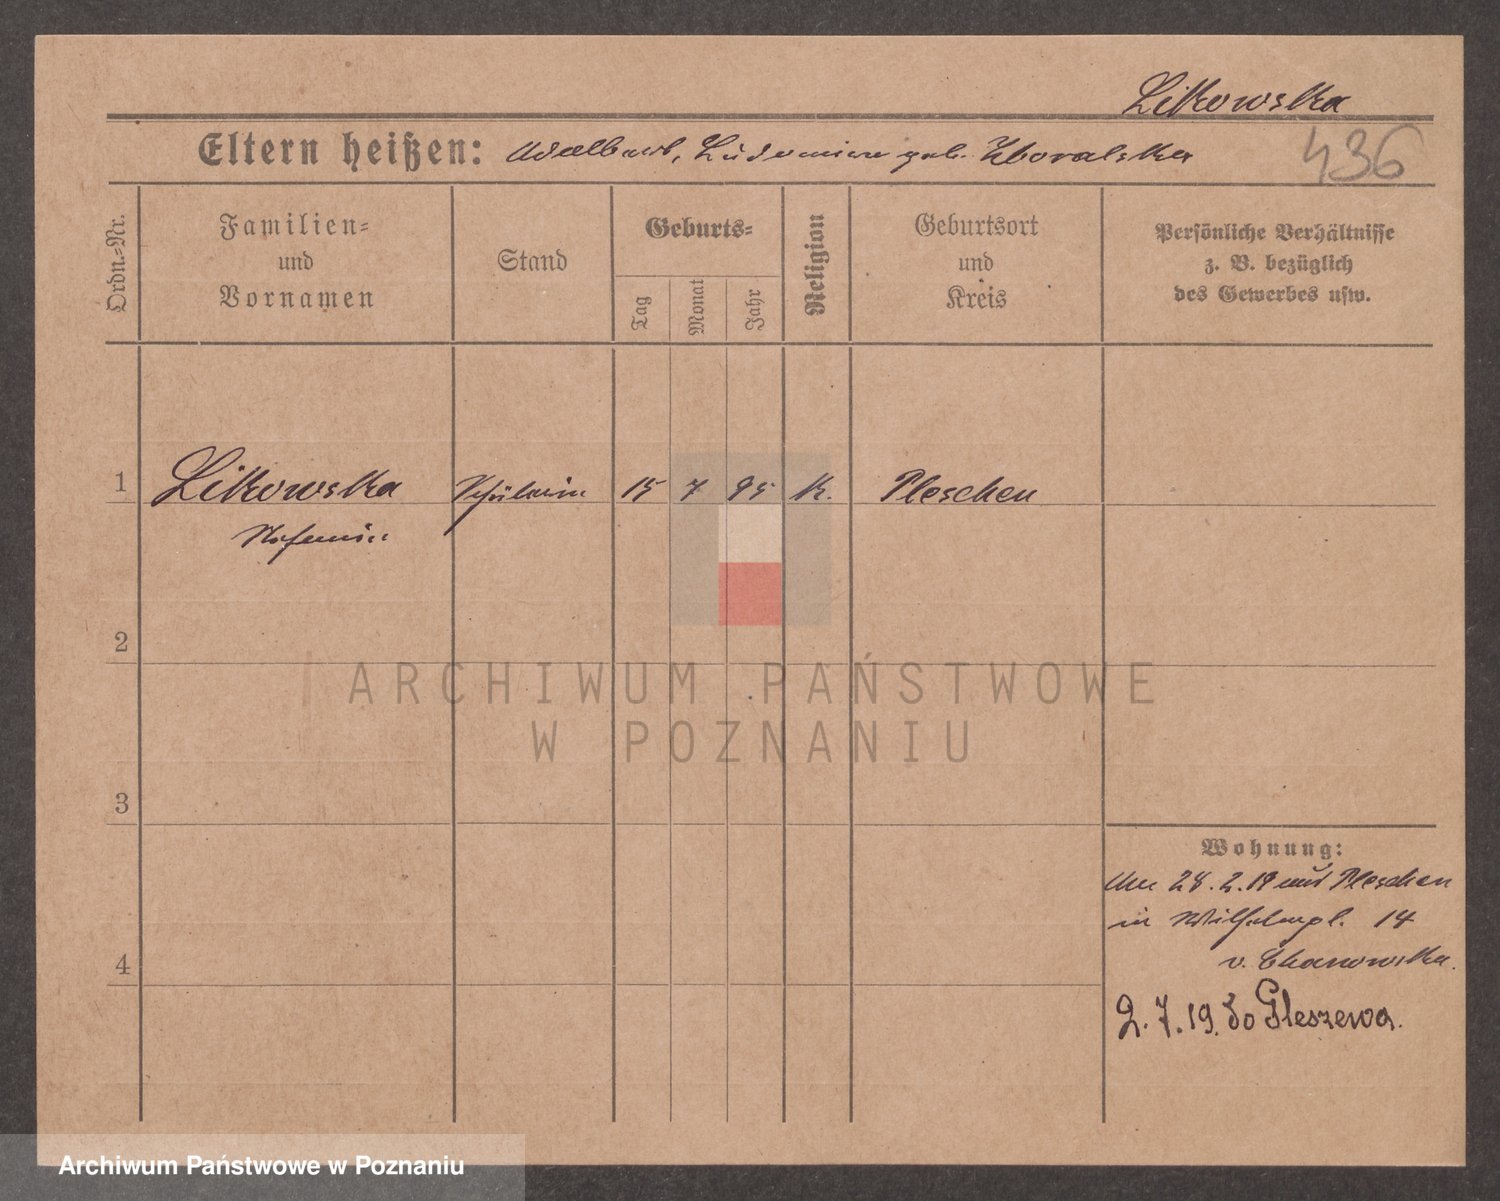 Likowska
Eltern heißen: Adalbert, Ludowica geb. Zboralska
436
Ordn.-Nr.
Familien-
und
Vornamen
Stand
Geburts-
Tag
Monat
Jahr
Religion
Geburtsort
und
Kreis
Persönliche Verhältnisse
z. B. bezüglich
des Gewerbes usw.
1
Likowska Schülerin 15 7 95 K. Pleschen
2
3
4
Wohnung:
Am 28.2.19 aus Pleschen
in Wilhelmpl. 14
v. Chanowska.
2.7.19. do Pleszewa.
ARCHIWUM PAŃSTWOWE
W POZNANIU
Archiwum Państwowe w Poznaniu